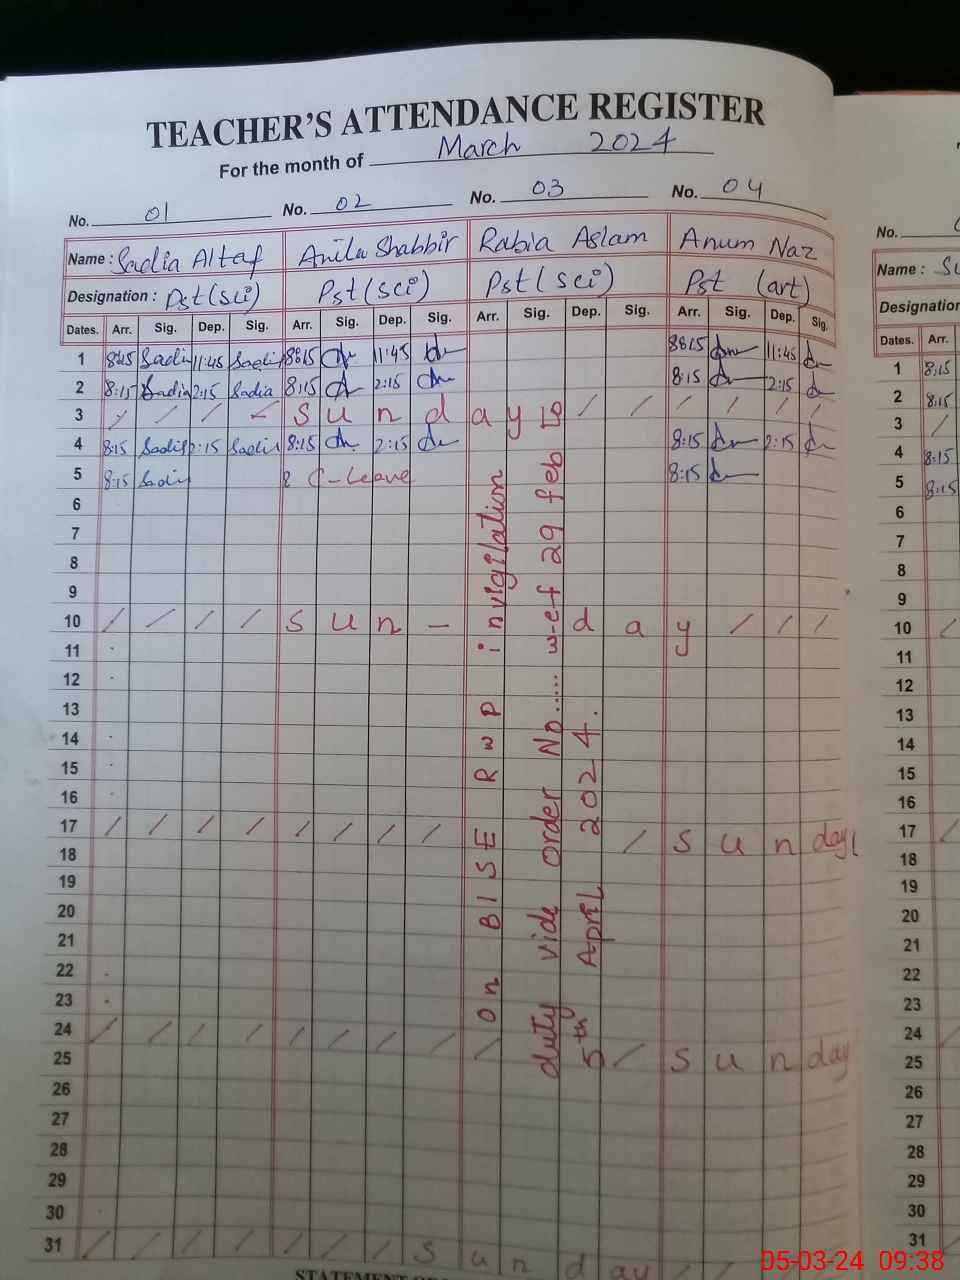 TEACHER'S ATTENDANCE REGISTER
For the month of March 2024
No. 01 No. 02 No. 03 No. 04
No.
Name : Sadia Altaf Anila Shabbir Rabia Aslam Anum Naz
Name : Su
Designation : Pst (sci) Pst (sci) Pst (sci) Pst (art)
Designation
Dates. Arr. Sig. Dep. Sig. Arr. Sig. Dep. Sig. Arr. Sig. Dep. Sig. Arr. Sig. Dep. Sig.
Dates. Arr.
1 8:15 Sadia 11:45 Sadia 8:15 11:45 8:15 11:45
1 8:15
2 8:15 Sadia 2:15 Sadia 8:15 2:15 8:15 2:15
2 8:15
3 / / / / S u n d a y / / / / / /
3 /
4 8:15 Sadia 2:15 Sadia 8:15 2:15 8:15 2:15
4 8:15
5 8:15 Sadia C-Leave 8:15
5 8:15
6
6
7
7
8
8
9
9
10 / / / / S u n - d a y / / /
10 /
11
11
12
12
13
13
14
14
15
15
16
16
17 / / / / / / / / / S u n day
17 /
18
18
19
19
20
20
21
21
22
22
23
23
24 / / / / / / / / / / S u n day
24 /
25
25
26
26
27
27
28
28
29
29
30
30
31 / / / / / / / S u n d ay / /
31 /
on BISE RWP invigilation
duty vide order No...... w-ef 29 feb to
5th April 2024.
05-03-24 09:38